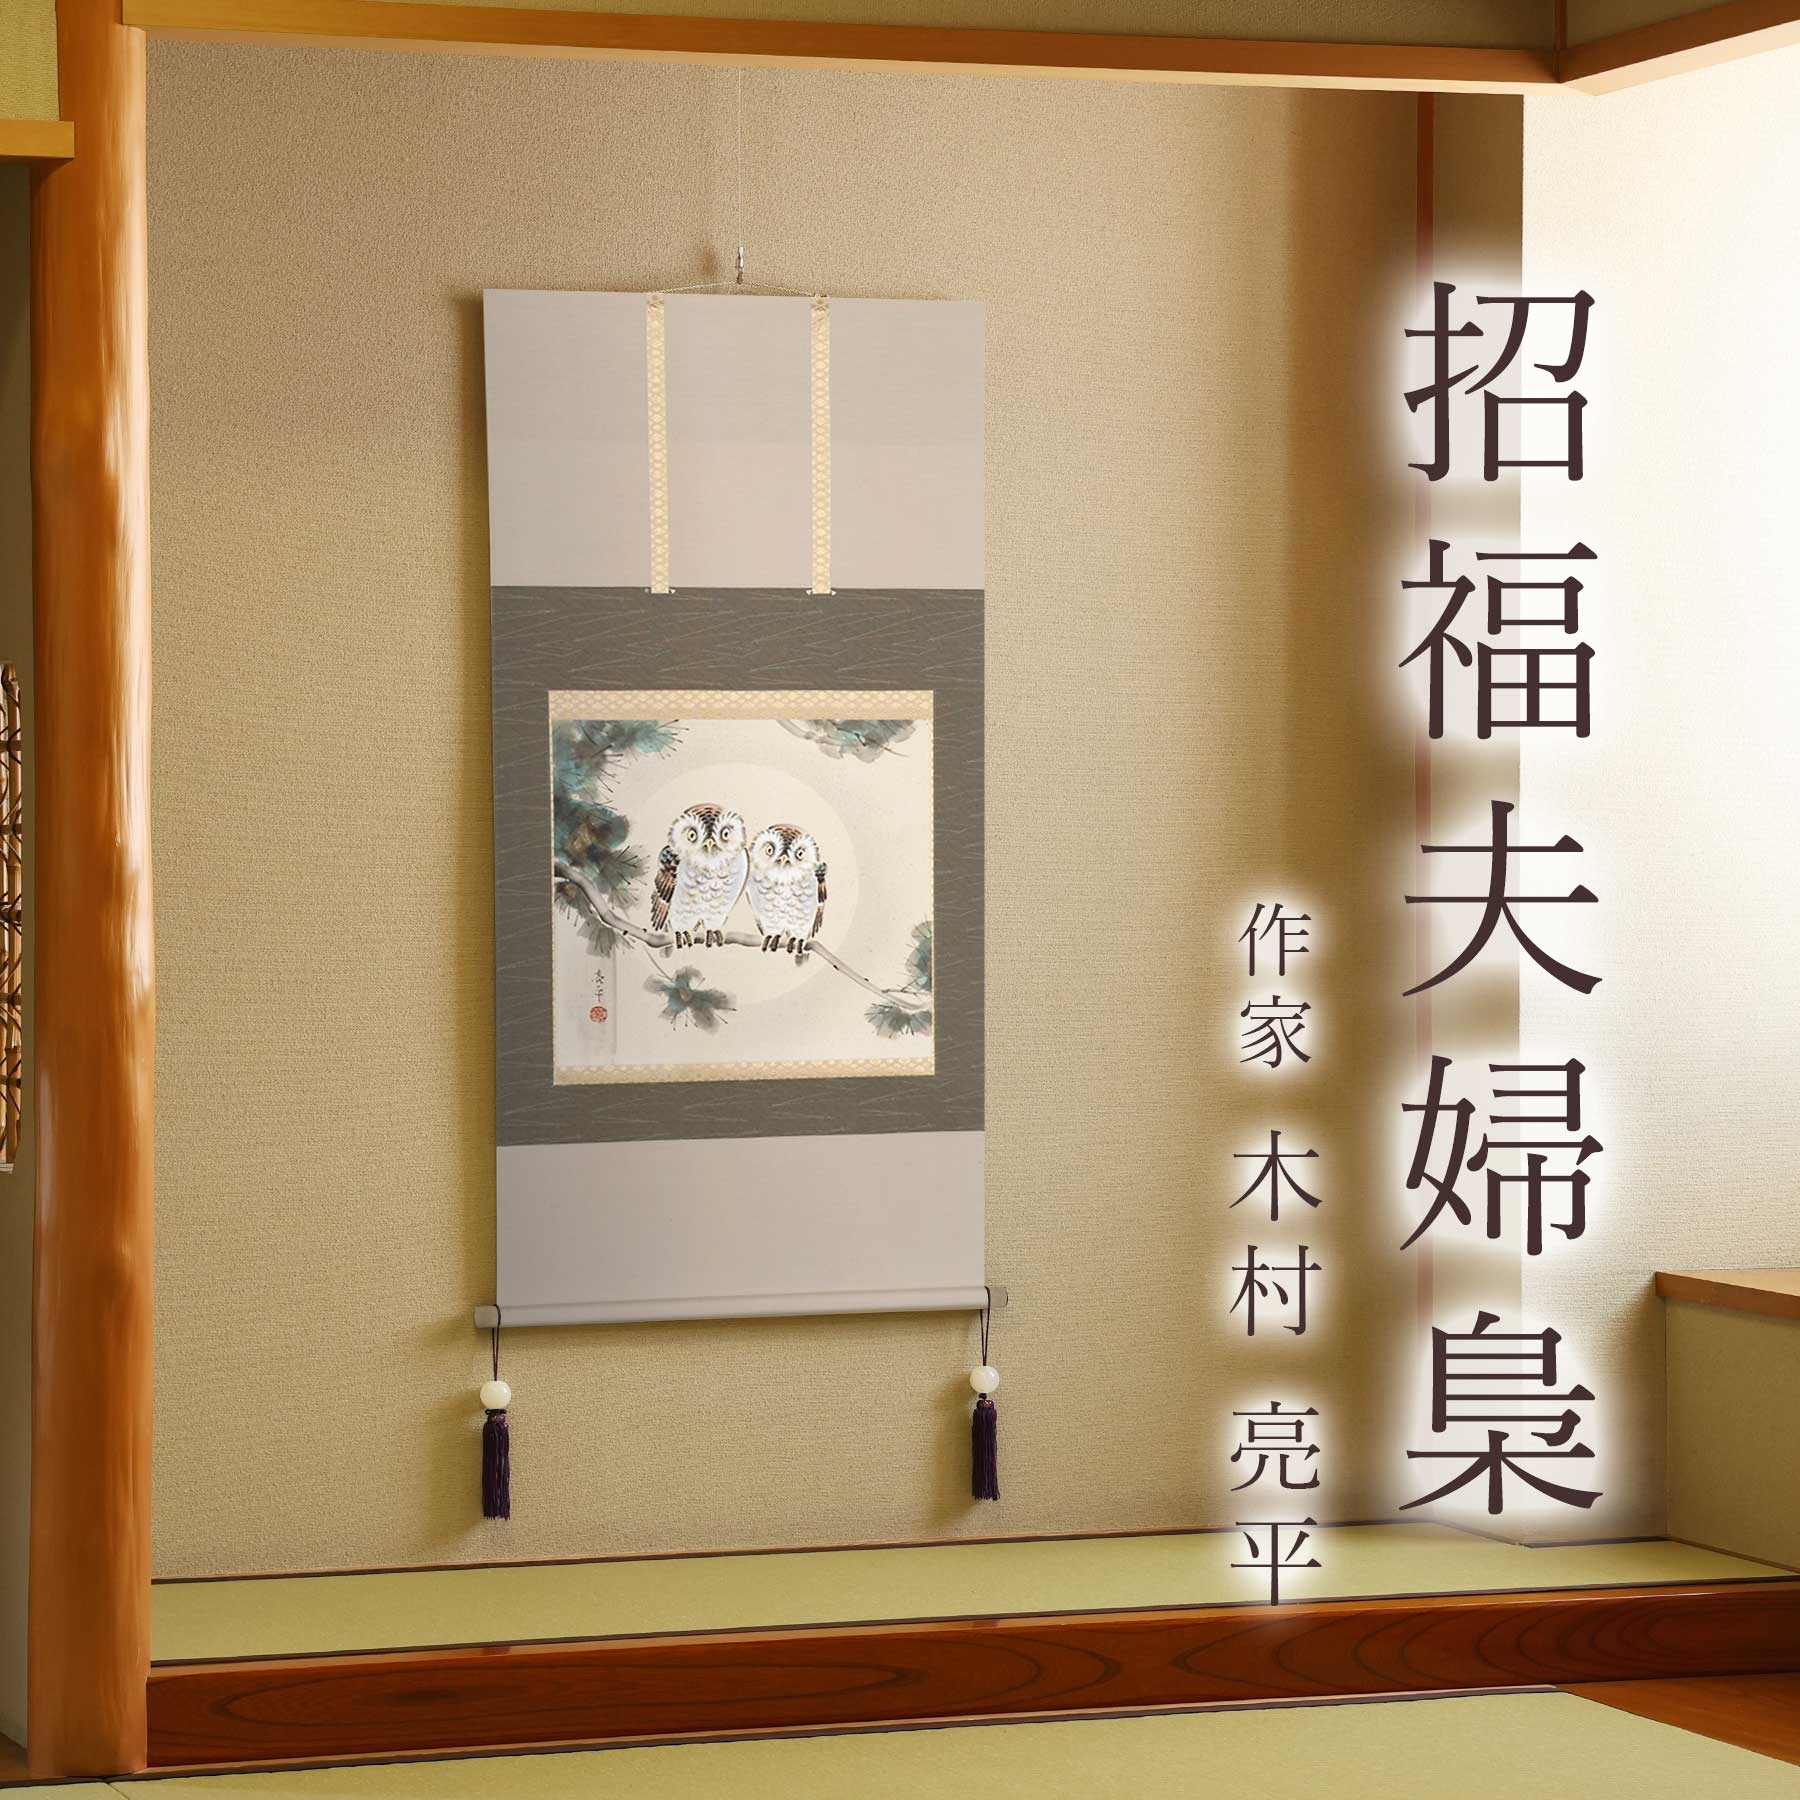 招福夫婦梟
作家 木村 亮平
亮平